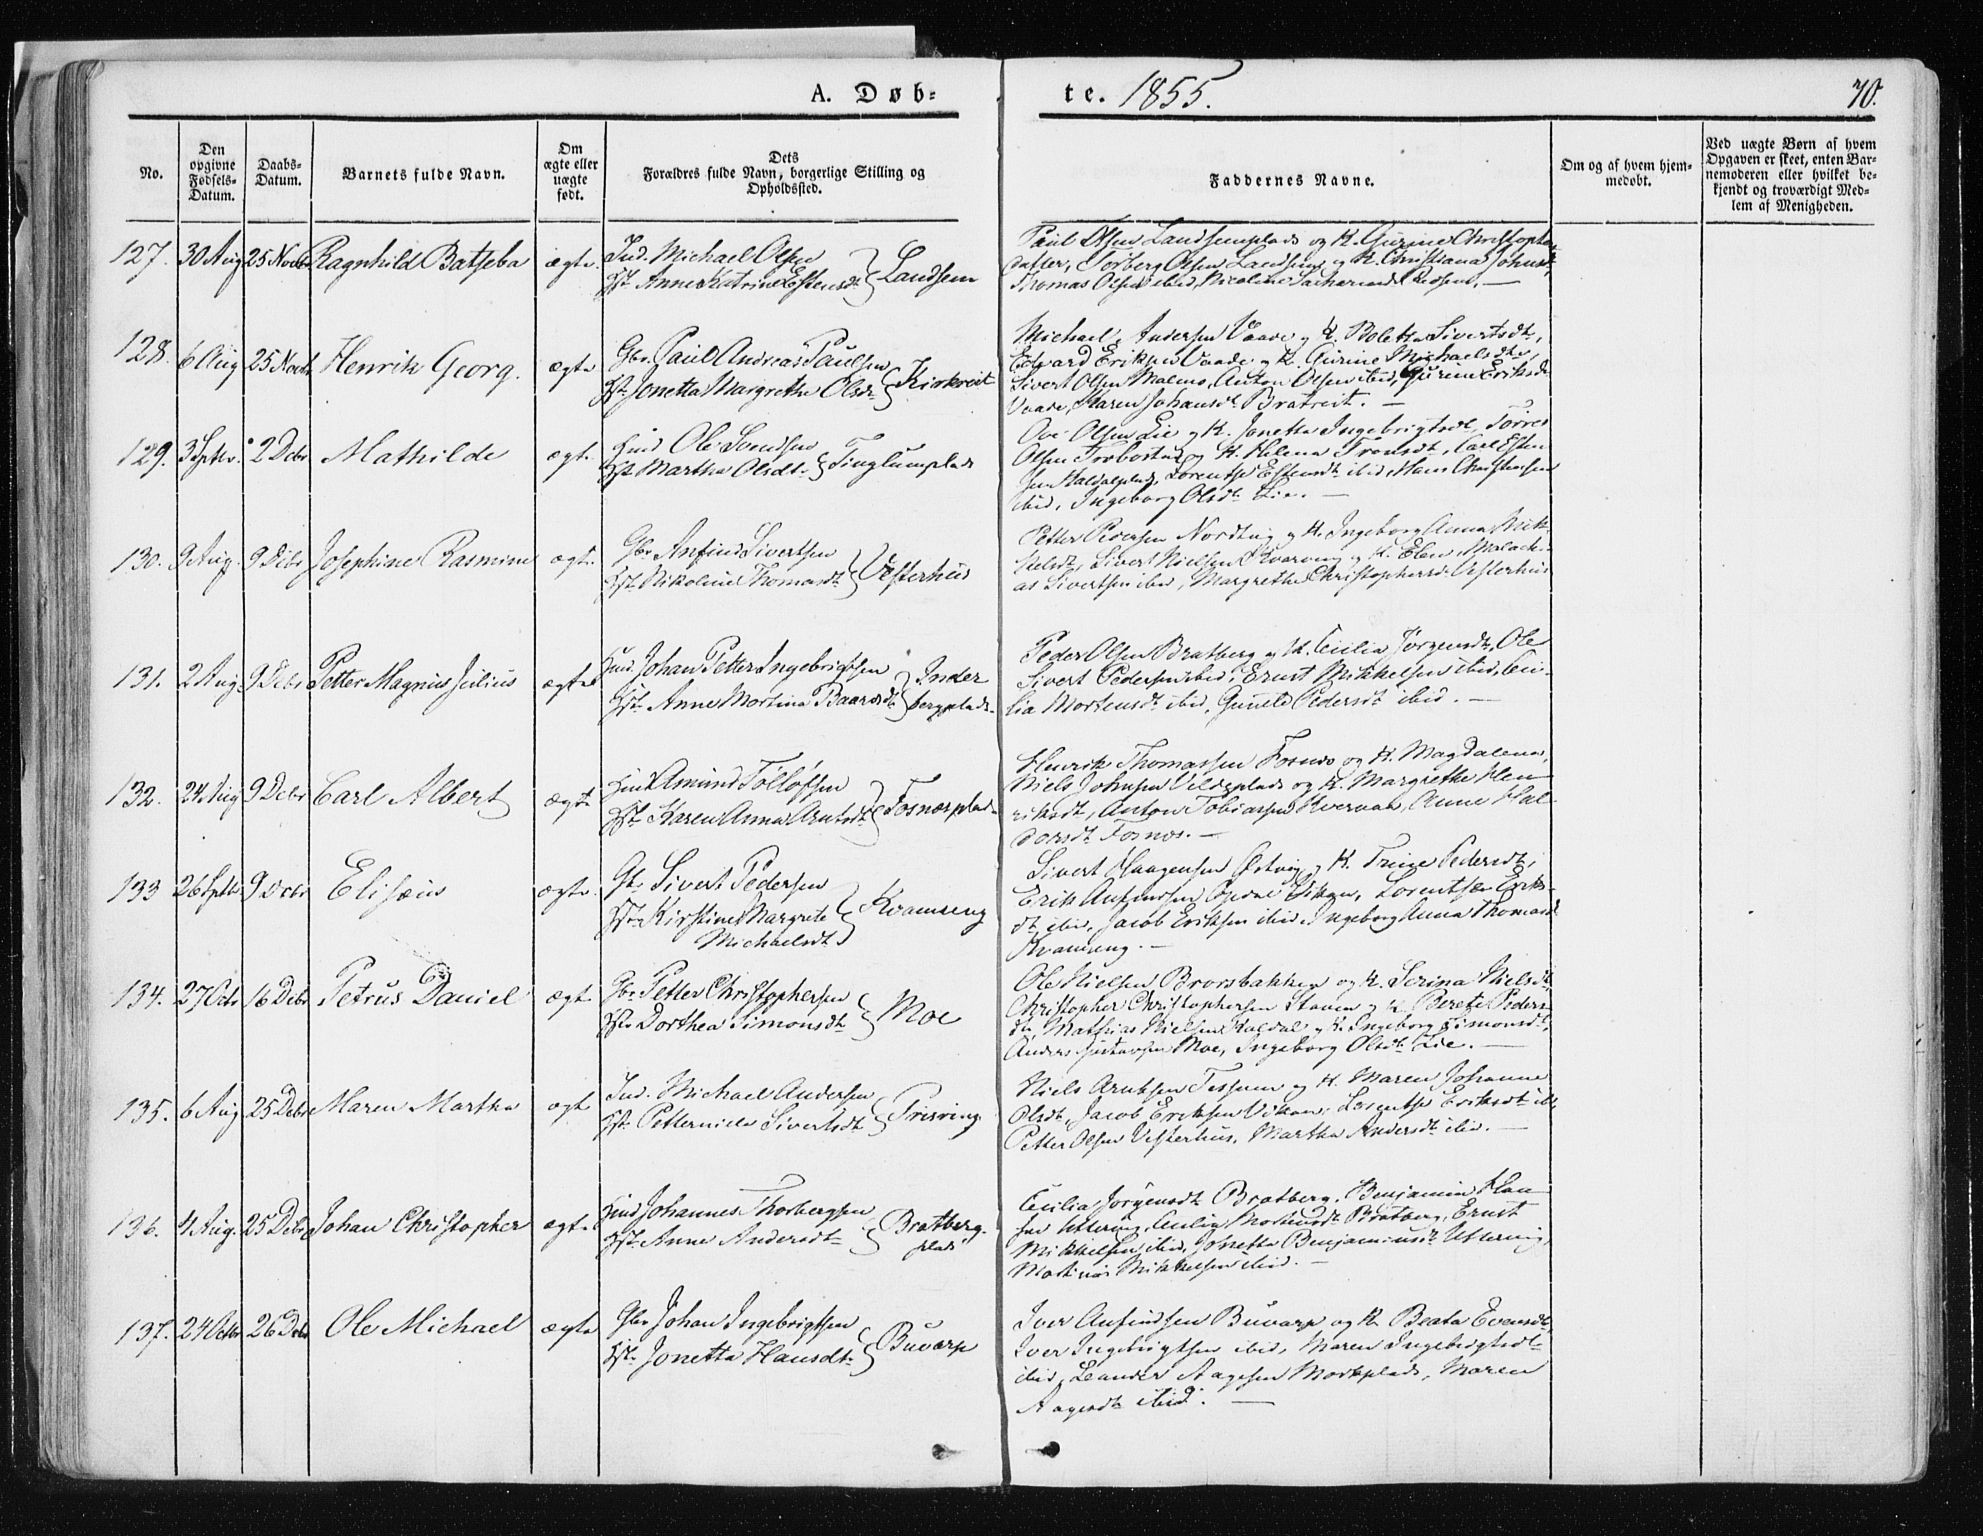 A. Døb-
te. 1855.
70.
No.
Den opgivne Fødsels-Datum.
Daabs-Datum.
Barnets fulde Navn.
Om ægte eller uægte født.
Dets Forældres fulde Navn, borgerlige Stilling og Opholdssted.
Faddernes Navne.
Om og af hvem hjemmedøbt.
Ved uægte Børn af hvem Opgaven er skeet, enten Barnemoderen eller hvilket bekjendt og troværdigt Medlem af Menigheden.
127. 30 Aug 25 Novbr Ragnhild Batseba ægte. Ind. Michael Olsen
Hst. Anne Katrine Estensdt. } Landsem
Paul Olsen Landsemplads og K. Gurine Christopher
datter, Torberg Olsen Landsem og K. Christiana Johnsdt,
Thomas Olsen ibid, Nicoline
128. 6 Aug 25 Novbr Henrik Georg. ægte Gbr. Paul Andreas Paulsen
Hst. Jonetta Margrethe Olsdt. } Kirkreit
Michael Andersen Vaade og K. Boletta Sivertsdt,
Edvard Eriksen Vaade og K. Gurine Michaelsdtr,
Sivert Olsen Malmo, Anton Olsen ibid, Gurine Eriksdt
Vaade, Karen Johansdt. Bratreit. —
129. 3 Septbr. 2 Debr Mathilde ægte. Hmd Ole Svendsen
Hst. Martha Olsdt. } Tinglumplads
Ove Olsen Lie og K. Jonetta Ingebrigtsdt, Torres
Olsen og K. Helena Tronsdt, Carl Esten
sen Kaldalplads, Lorentse Estensdt ibid, Hans Christensen
ibid, Ingeborg Olsdt. Lie. —
130. 9 Aug. 9 Debr Josephine Rasmine ægte. Gbr Anfind Sivertsen
Hst. Nikoline Thomasdt. } Vesterhus
Petter Pedersen Nordtug og K. Ingeborg Anna Mik
kelsdt, Sivert Nielsen Kvarving og K. Elen, Malach
as Sivertsen ibid, Margrethe Christophersdt Vesterhus
131. 2 Aug 9 Debr Petter Magnus Julius ægte Hmd. Johan Petter Ingebrigtsen
Hst. Anne Martina Baarsdt. } Inder
bergplads.
Peder Olsen Bratberg og K. Cicilia Jørgensdt, Ole
Sivert Pedersen ibid, Ernst Mikkelsen ibid, Cici
lia Mortensdt ibid, Gunild Pedersdt ibid. —
132. 24 Aug 9 Debr Carl Albert ægte Hmd Amund Tolløfsen
Hst. Karen Anna Arntsdt } Fosnæsplads.
Henrik Thomassen Fosnæs og K. Magdalena,
Niels Johnsen Veldeplads og K. Margrethe Hen
riksdt, Anton Tobiassen Kvernaa, Anne Hal
dorsdt Fosnæs. —
133 26 Septb. 9 Debr Elisæus ægte. Gbr. Sivert Pedersen
Hst. Kirstine Margrete
Michaelsdt } Kvamseng
Sivert Haagensen Østvig og K. Trine Pedersdt,
Erik Anfinsen Opdal Vikan, Lorentse Eriks
dt. ibid, Jacob Eriksen ibid, Ingeborg Anna Thomasd
Kvamseng. —
134. 27 Octbr 16 Debr Petrus Daniel ægte Gbr. Petter Christophersen
Hst. Dorthea Simonsdt. } Moe
Ole Nielsen Brorsbakken og K. Serina Nielsdt,
Christopher Christophersen Staven og K. Berete Peders
dt, Mathias Nielsen Kaldal og K. Ingeborg Simonsdt,
Anders Gustavsen Moe, Ingeborg Olsdt. Lie. —
135. 6 Aug 25 Debr Maren Martha ægt Ind. Michael Andersen
Hst. Petternille Sivertsdt } Trisving
Niels Arntsen Tessem og K. Maren Johanne
Olsdt, Jacob Eriksen Vikan, Lorentse Eriksdt ibid
Petter Olsen Vesterhus, Martha Andersdt ibid. —
136. 4 Aug. 25 Debr Johan Christopher ægte Hmd Johannes Thorbergsen
Hst. Anne Andersdt. } Bratberg.
plads
Cecilia Jørgensdt Bratberg, Benjamin Han
sen Uttering, Cicilia Mortensdt Bratberg, Ernst
Mikkelsen ibid, Jonetta Benjaminsdt. Uttering,
Mikkelsen ibid. —
137. 24 Octbr 26 Debr Ole Michael ægte Gbr Johan Ingebrigtsen
Hst. Jonetta Hansdt. } Buvarp
Iver Anfindsen Buvarp og K. Beata Evensdt,
Iver Ingebrigtsen ibid, Maren Ingebrigtsdt.
ibid, Leander Aagesen Moeplads, Maren
Aagesdt ibid. —